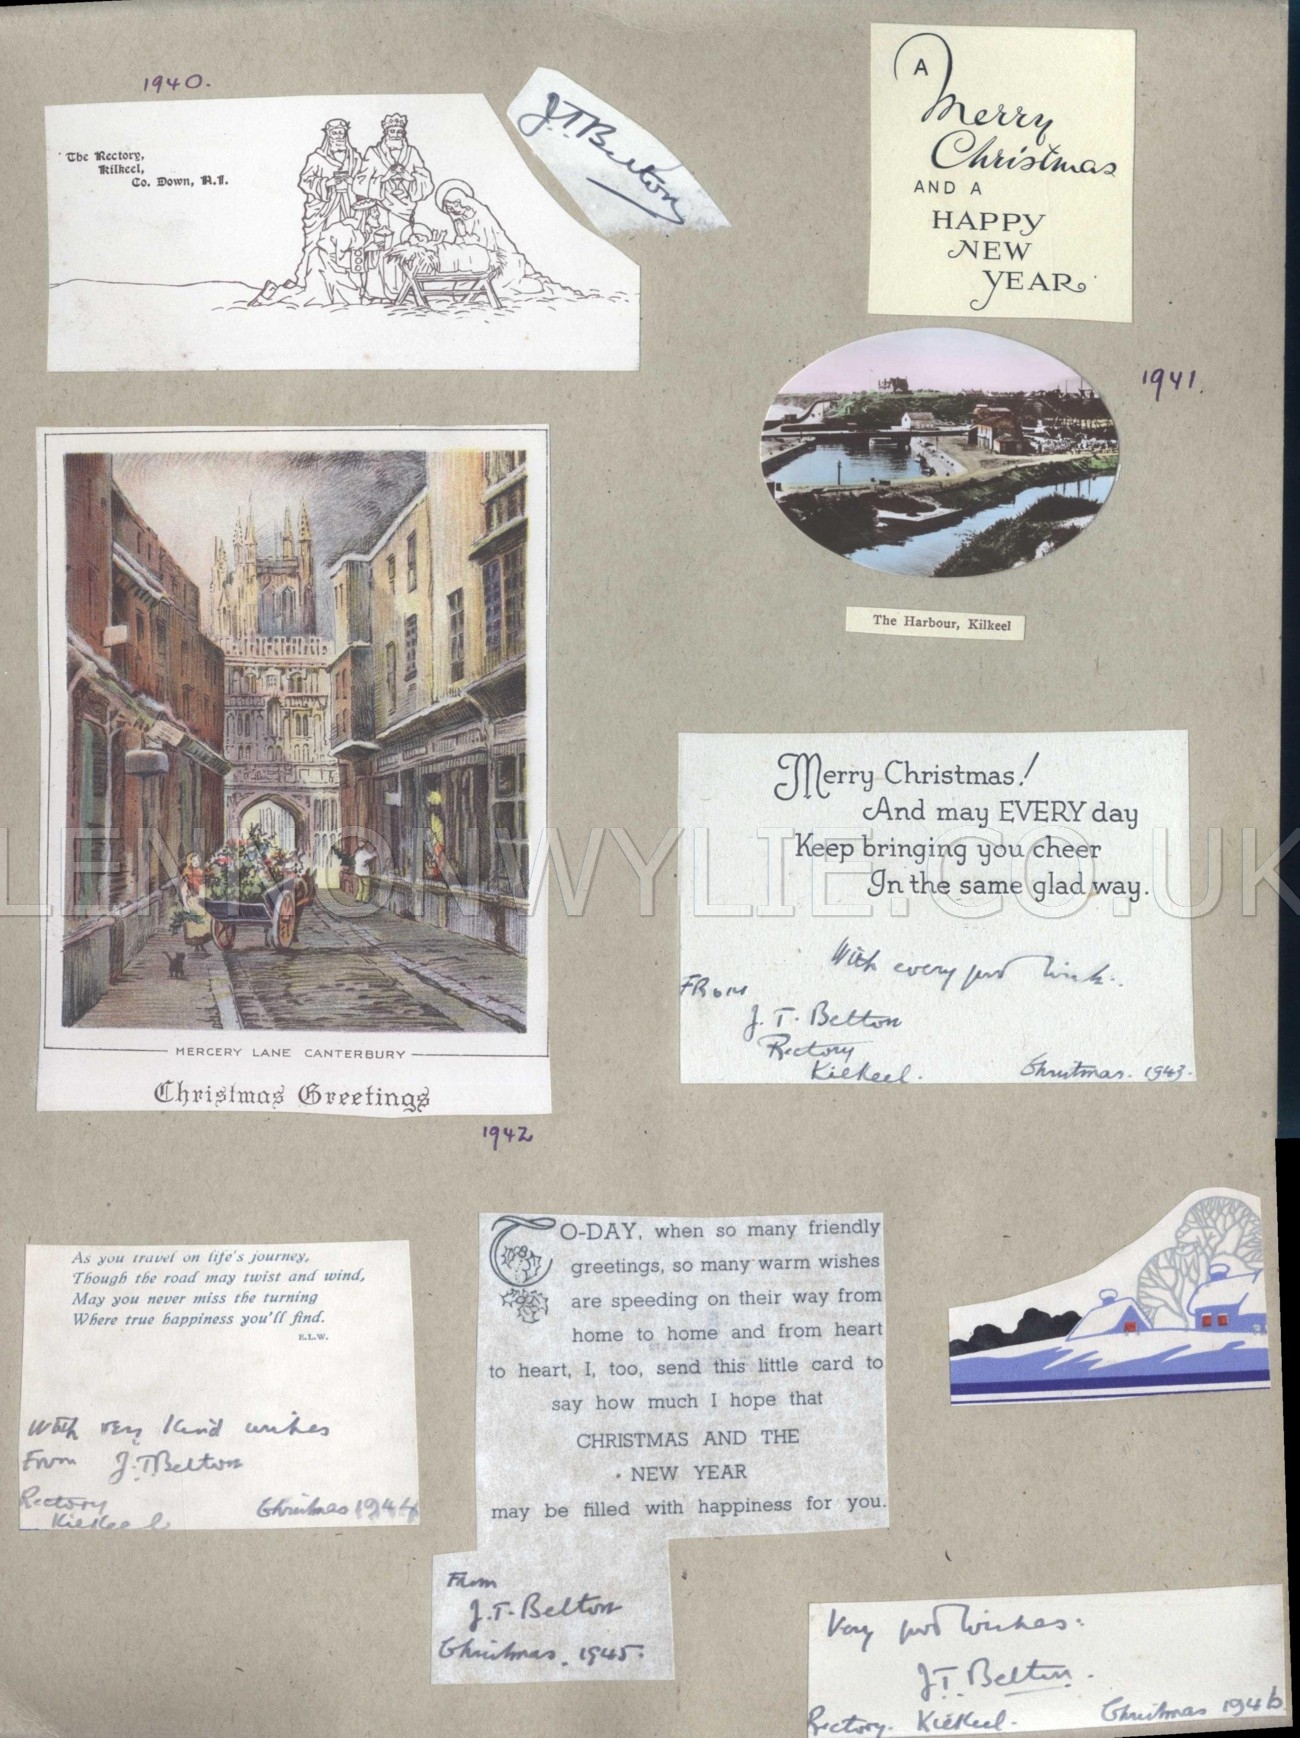 1940.
The Rectory,
Kilkeel,
Co. Down, N.I.
J.T. Belton
A
Merry
Christmas
AND A
HAPPY
NEW
YEAR
1941.
The Harbour, Kilkeel
MERCERY LANE CANTERBURY
Christmas Greetings
1942
Merry Christmas!
And may EVERY day
Keep bringing you cheer
In the same glad way.
With every good wish.
From
J. T. Belton
Rectory
Kilkeel.
Christmas. 1943.
LENNONWYLIE.CO.UK
As you travel on life's journey,
Though the road may twist and wind,
May you never miss the turning
Where true happiness you'll find.
E.L.W.
With very kind wishes
From J.T Belton
Rectory
Kilkeel
Christmas 1944
TO-DAY, when so many friendly
greetings, so many warm wishes
are speeding on their way from
home to home and from heart
to heart, I, too, send this little card to
say how much I hope that
CHRISTMAS AND THE
NEW YEAR
may be filled with happiness for you.
From
J. T. Belton
Christmas. 1945.
Very good wishes.
J.T. Belton.
Rectory. Kilkeel.
Christmas 1946